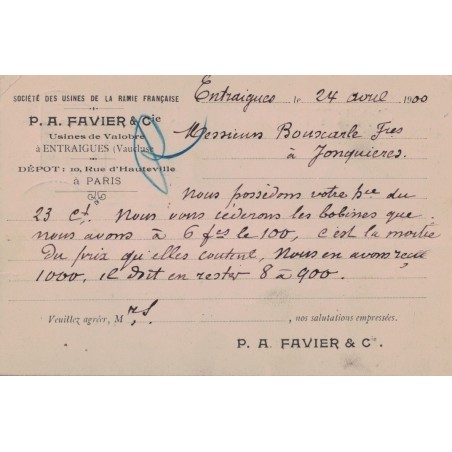 SOCIÉTÉ DES USINES DE LA RAMIE FRANÇAISE
P. A. FAVIER & Cie
Usines de Valobre
à ENTRAIGUES (Vaucluse)
DÉPOT : 10, Rue d'Hauteville
à PARIS
Entraigues le 24 avril 1900
Messieurs Bouscarle Fres
à Jonquières.
Nous possédons votre hre du
23 ct. Nous vous céderons les bobines que
nous avons à 6 fcs le 100, c'est la moitié
du prix qu'elles coutent, Nous en avons reçu
1000, il doit en rester 8 à 900.
Veuillez agréer, Mrs, nos salutations empressées.
P. A. FAVIER & Cie.